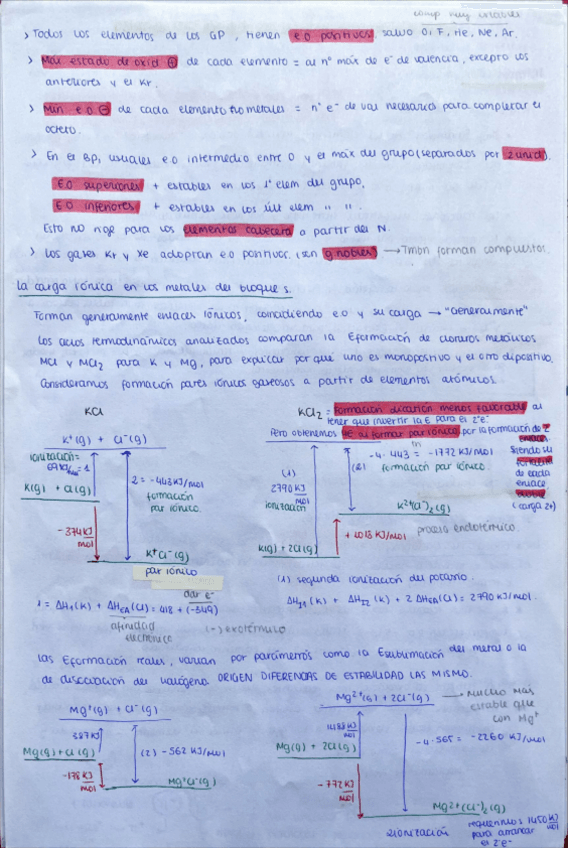 comp muy estables
> Todos los elementos de los GP, tienen e.o positivos, salvo O, F, He, Ne, Ar.
> Max estado de oxid ⊕ de cada elemento = al nº máx de e⁻ de valencia, excepto los
anteriores y el Kr.
> Min e.o ⊖ de cada elemento no metales = nº e⁻ de val necesarios para completar el
octeto.
> En el Bp, usuales e.o intermedio entre 0 y el máx del grupo (separados por 2 unid).
E.O superiores + estables en los 1º elem del grupo.
E.O inferiores + estables en los últ elem " " .
Esto no rige para los elementos cabecera a partir del N.
> Los gases Kr y Xe adoptan e.o positivos. (son g.nobles) → Tmbn forman compuestos.
La carga iónica en los metales del bloque s.
Forman generalmente enlaces iónicos, coincidiendo e.o y su carga → "Generalmente"
Los ciclos termodinámicos analizados comparan la Eformación de cloruros metálicos
MCl y MCl2 para K y Mg, para explicar por que uno es monopositivo y el otro dipositivo.
Consideramos formación pares iónicos gaseosos a partir de elementos atómicos.
KCl
K⁺(g) + Cl⁻(g)
ionización =
69 KJ/mol = 1
K(g) + Cl(g)
2 = -443 KJ/mol
formación
par iónico.
-374 KJ/mol
K⁺Cl⁻(g)
par iónico
dar e⁻
1 = ΔHI(K) + ΔHEA(Cl) = 418 + (-349)
afinidad
electrónica
(-) exotérmico
KCl2 = Formación dicatión menos favorable al
tener que invertir la E para el 2ºe⁻
Pero obtenemos +E al formar par iónico, por la formación de 2
enlaces
siendo su
de cada
enlace
(carga 2+)
-4·443 = -1772 KJ/mol
(2) formación par iónico.
(1)
2790 KJ/mol
ionización
K²⁺(Cl⁻)2(g)
+1018 KJ/mol proceso endotérmico
K(g) + 2Cl(g)
(1) segunda ionización del potasio.
ΔHI1(K) + ΔHI2(K) + 2 ΔHEA(Cl) = 2790 KJ/mol.
Las Eformación reales, varían por parámetros como la Esublimación del metal o la
de disociación del halógeno. ORIGEN DIFERENCIAS DE ESTABILIDAD LAS MISMO.
Mg⁺(g) + Cl⁻(g)
387 KJ
Mg(g) + Cl(g)
(2) -562 KJ/mol
-175 KJ/mol
Mg⁺Cl⁻(g)
Mg²⁺(g) + 2Cl⁻(g) → Mucho más
estable que
con Mg⁺
1488 KJ/mol
Mg(g) + 2Cl(g)
-4·565 = -2260 KJ/mol
-772 KJ/mol
Mg²⁺(Cl⁻)2(g)
2ionización
requerimos 1450 KJ/mol
para arrancar
el 2ºe⁻